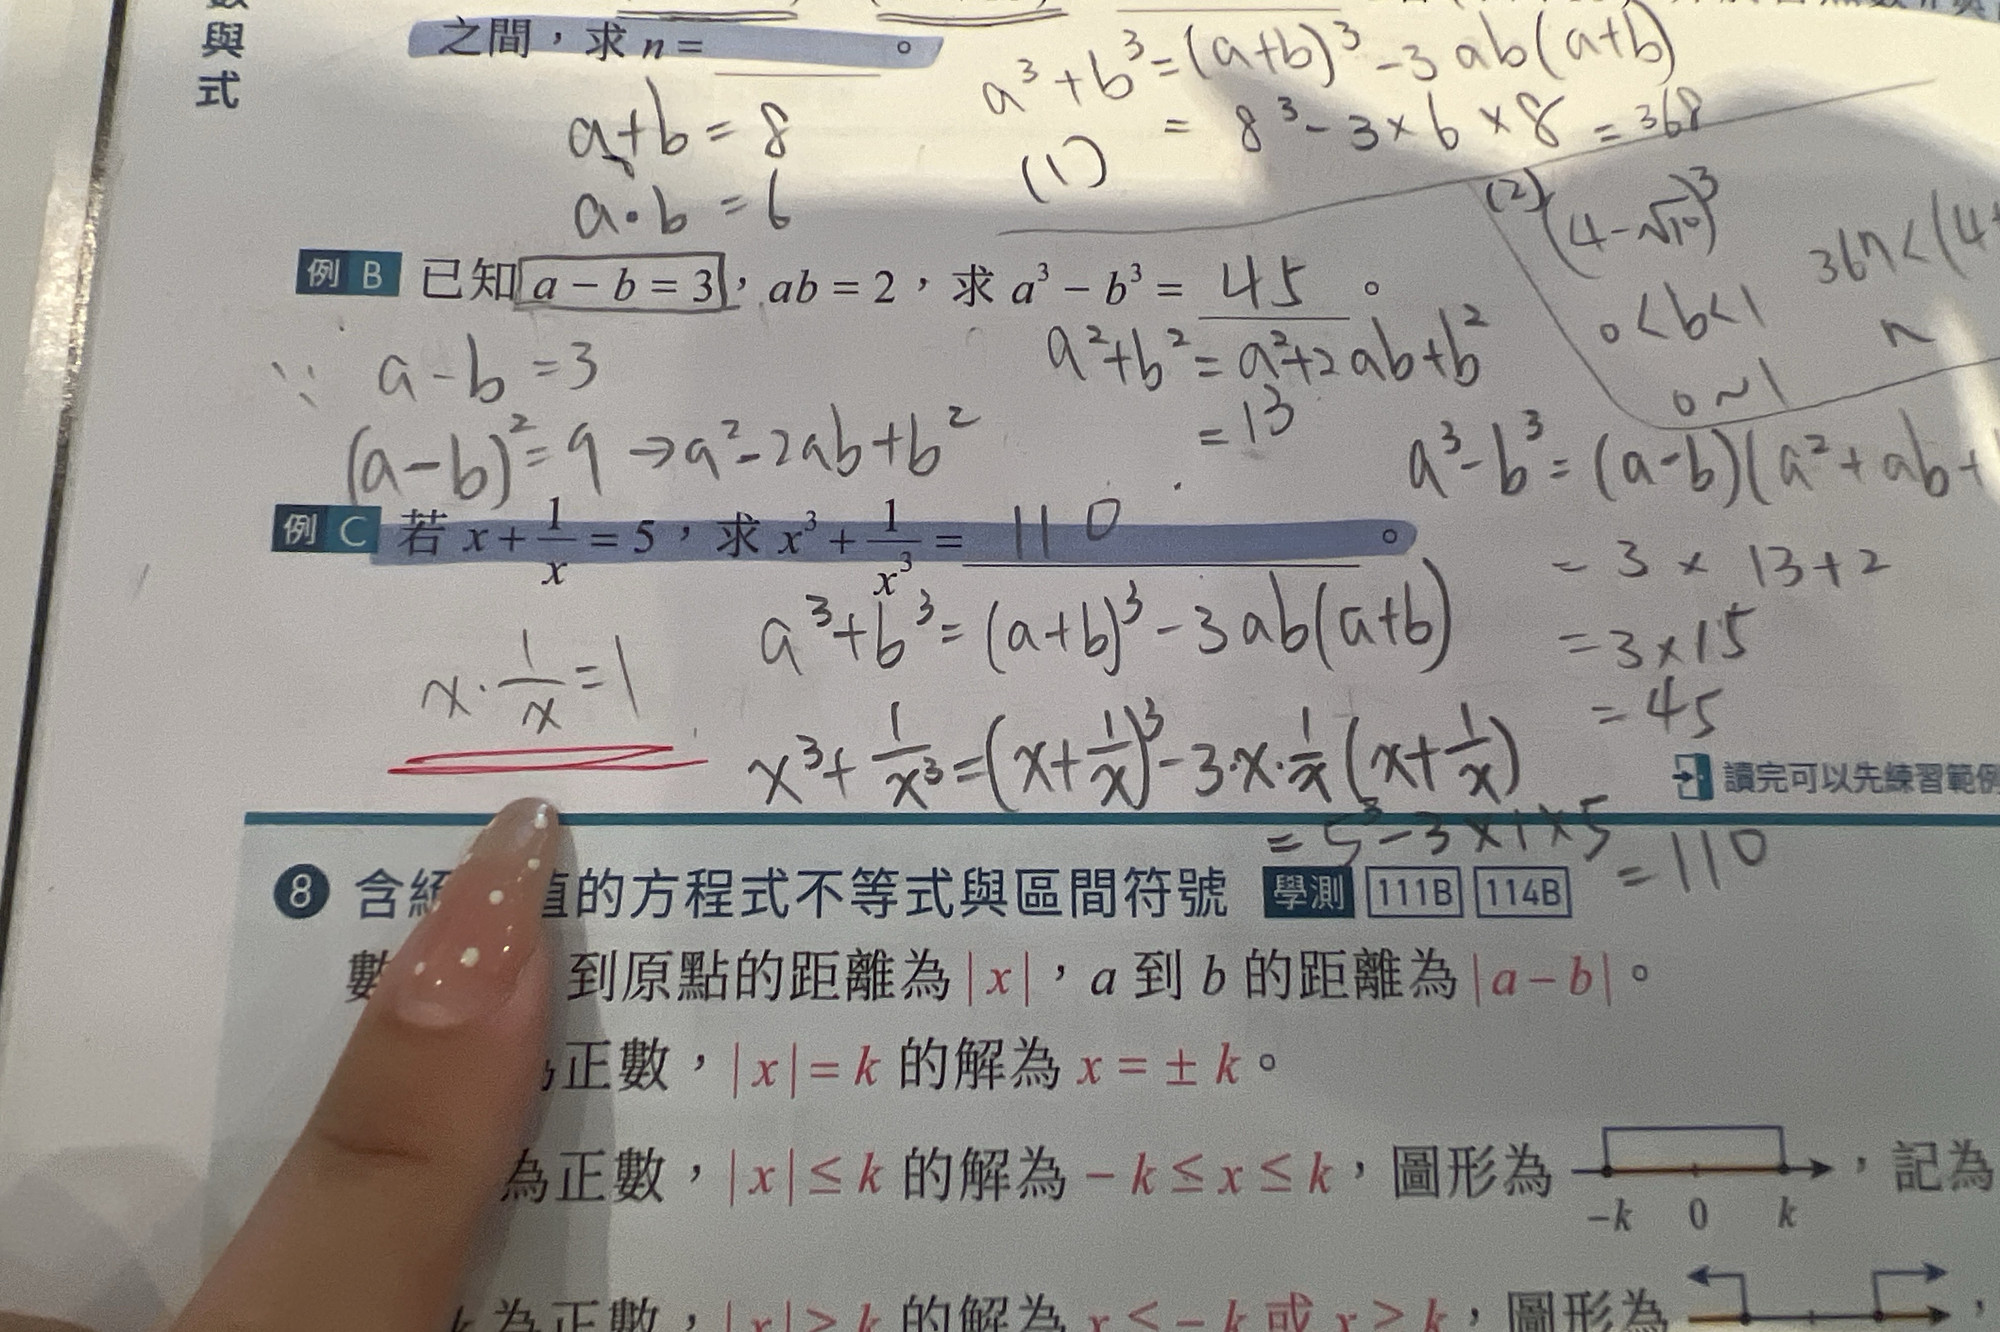 與
式
之間，求 n = 。
a³+b³=(a+b)³-3ab(a+b)
= 8³-3×6×8=368
a+b=8
a·b=6
(1)
(2)
(4-√10)³
0<b<1
0~1
36n<(4+
n
例 B 已知 a − b = 3，ab = 2，求 a³ − b³ = 45 。
a-b=3
a²+b²=a²+2ab+b²
=13
(a-b)²=9→a²-2ab+b²
a³-b³=(a-b)(a²+ab+
=3×13+2
=3×15
=45
例 C 若 x + 1/x = 5，求 x³ + 1/x³ = 110 。
x·1/x=1
a³+b³=(a+b)³-3ab(a+b)
x³+1/x³=(x+1/x)³-3·x·1/x(x+1/x)
=5³-3×1×5=110
讀完可以先練習範例
8 含 的方程式不等式與區間符號 學測 111B 114B
數 到原點的距離為 |x|，a 到 b 的距離為 |a − b|。
正數，|x| = k 的解為 x = ± k。
為正數，|x| ≤ k 的解為 − k ≤ x ≤ k，圖形為 ，記為
−k 0 k
k 為正數，|x| > k 的解為 x < − k 或 x > k，圖形為 ，